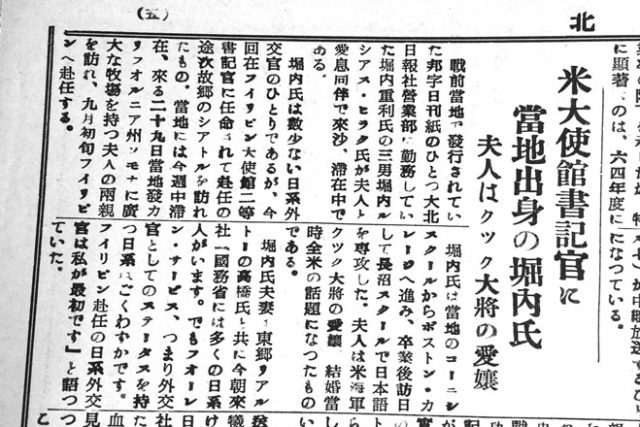 北
(五)
に顯著
のは、六四年度に
になつている。
米大使館書記官に
當地出身の堀内氏
夫人はクック大將の愛嬢
戰前當地で發行されてい
た邦字日刊紙のひとつ大北
日報社營業部に勤務してい
た堀内重利氏の三男堀内ル
シアス・ヒラク氏が夫人と
愛息同伴で來沙、滯在中で
ある。
堀内氏は數少ない日系外
交官のひとりであるが、今
回在フイリピン大使館二等
書記官に任命されて赴任の
途次故郷のシアトルを訪れ
たもの。當地には今週中滯
在、來る二十九日當地發カ
リフオルニア州ソノマに廣
大な牧場を持つ夫人の兩親
を訪れ、九月初旬フイリピ
ンへ赴任する。
堀内氏は當地のコーニン
スクールからボストン・カ
レージへ進み、卒業後訪日
して長沼スクールで日本語
を專攻した。夫人は米海軍
クツク大將の愛嬢、結婚當
時全米の話題になつたもの
である。
堀内氏夫妻、東郷リアル
トーの高橋氏と共に今朝來
社「國務省には多くの日系
人がいます。でもフオーレ
ン・サービス、つまり外交
官としてのステータスを持
つ日系はごくわずかです。
フイリピン赴任の日系外交
官は私が最初です」と語つ
ていた。